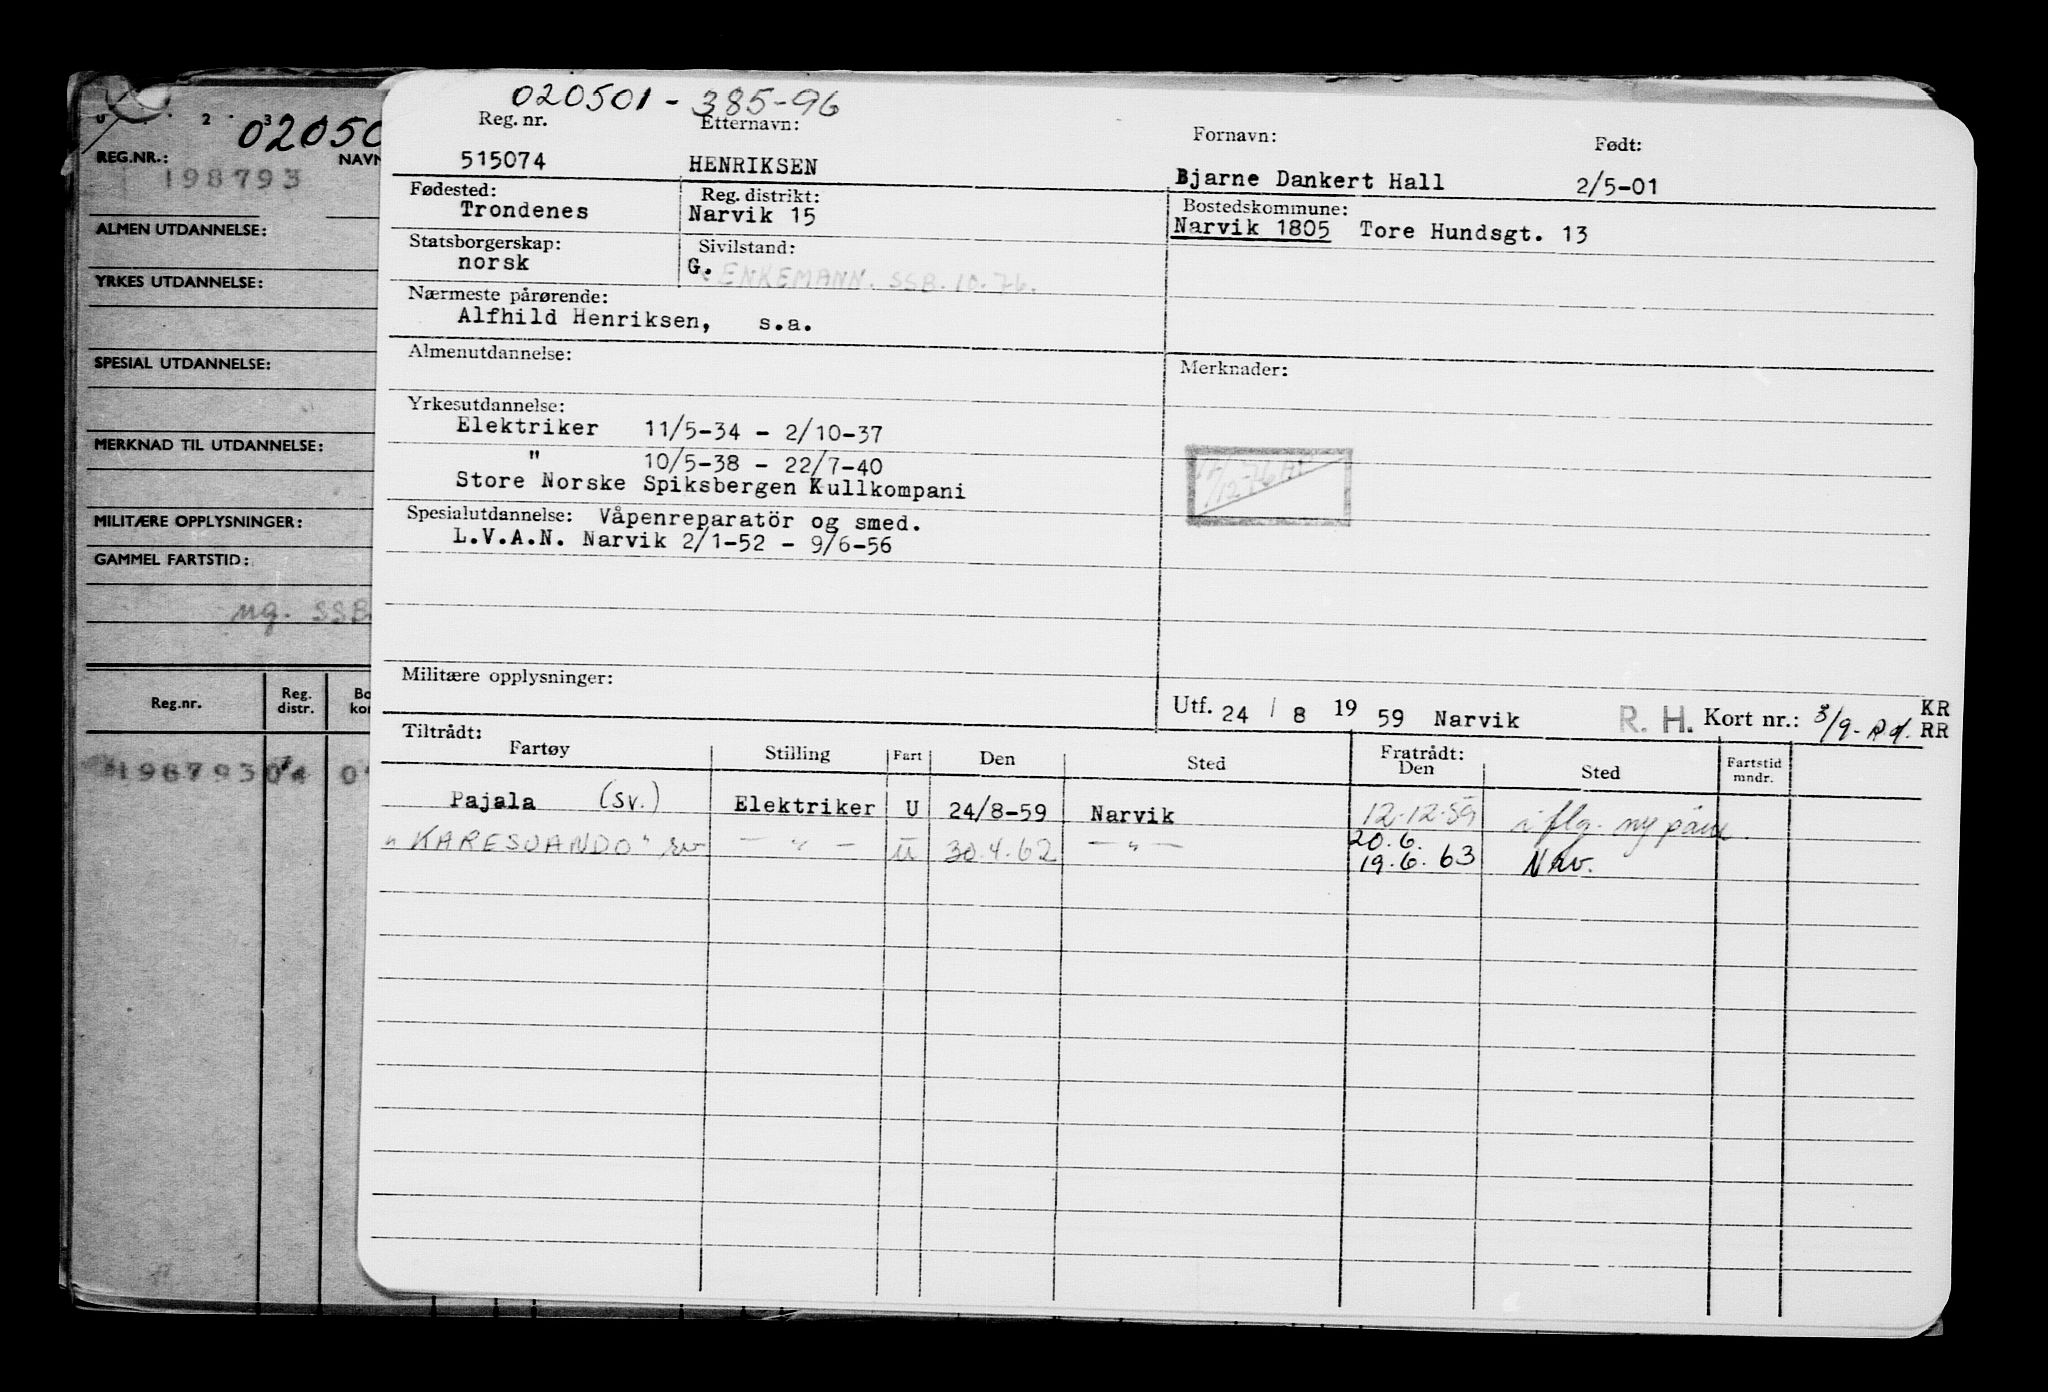 020501 - 385-96
Reg. nr. Etternavn: Fornavn: Født:
515074 HENRIKSEN Bjarne Dankert Hall 2/5-01
Fødested: Reg. distrikt: Bostedskommune:
Trondenes Narvik 15 Narvik 1805 Tore Hundsgt. 13
Statsborgerskap: Sivilstand:
norsk G. ENKEMANN. SSB. 10.76.
Nærmeste pårørende:
Alfhild Henriksen, s.a.
Almenutdannelse: Merknader:
Yrkesutdannelse:
Elektriker 11/5-34 - 2/10-37
" 10/5-38 - 22/7-40
Store Norske Spiksbergen Kullkompani
Spesialutdannelse: Våpenreparatör og smed.
L.V.A.N. Narvik 2/1-52 - 9/6-56
Militære opplysninger:
Utf. 24 / 8 19 59 Narvik R. H. Kort nr.: 3/9- KR
RR
Tiltrådt: Fratrådt:
Fartøy Stilling Fart Den Sted Den Sted Fartstid mndr.
Pajala (sv.) Elektriker U 24/8-59 Narvik 12.12.59 i flg. ny påm.
"KARESUANDO" sv — " — U 30.4.62 — " — 20.6.
19.6.63 Nav.
U 2 3
02050
REG.NR.: NAVN
198793
ALMEN UTDANNELSE:
YRKES UTDANNELSE:
SPESIAL UTDANNELSE:
MERKNAD TIL UTDANNELSE:
MILITÆRE OPPLYSNINGER:
GAMMEL FARTSTID:
ng. SSB.
Reg.nr. Reg. distr. Bo kon
198793 04 0